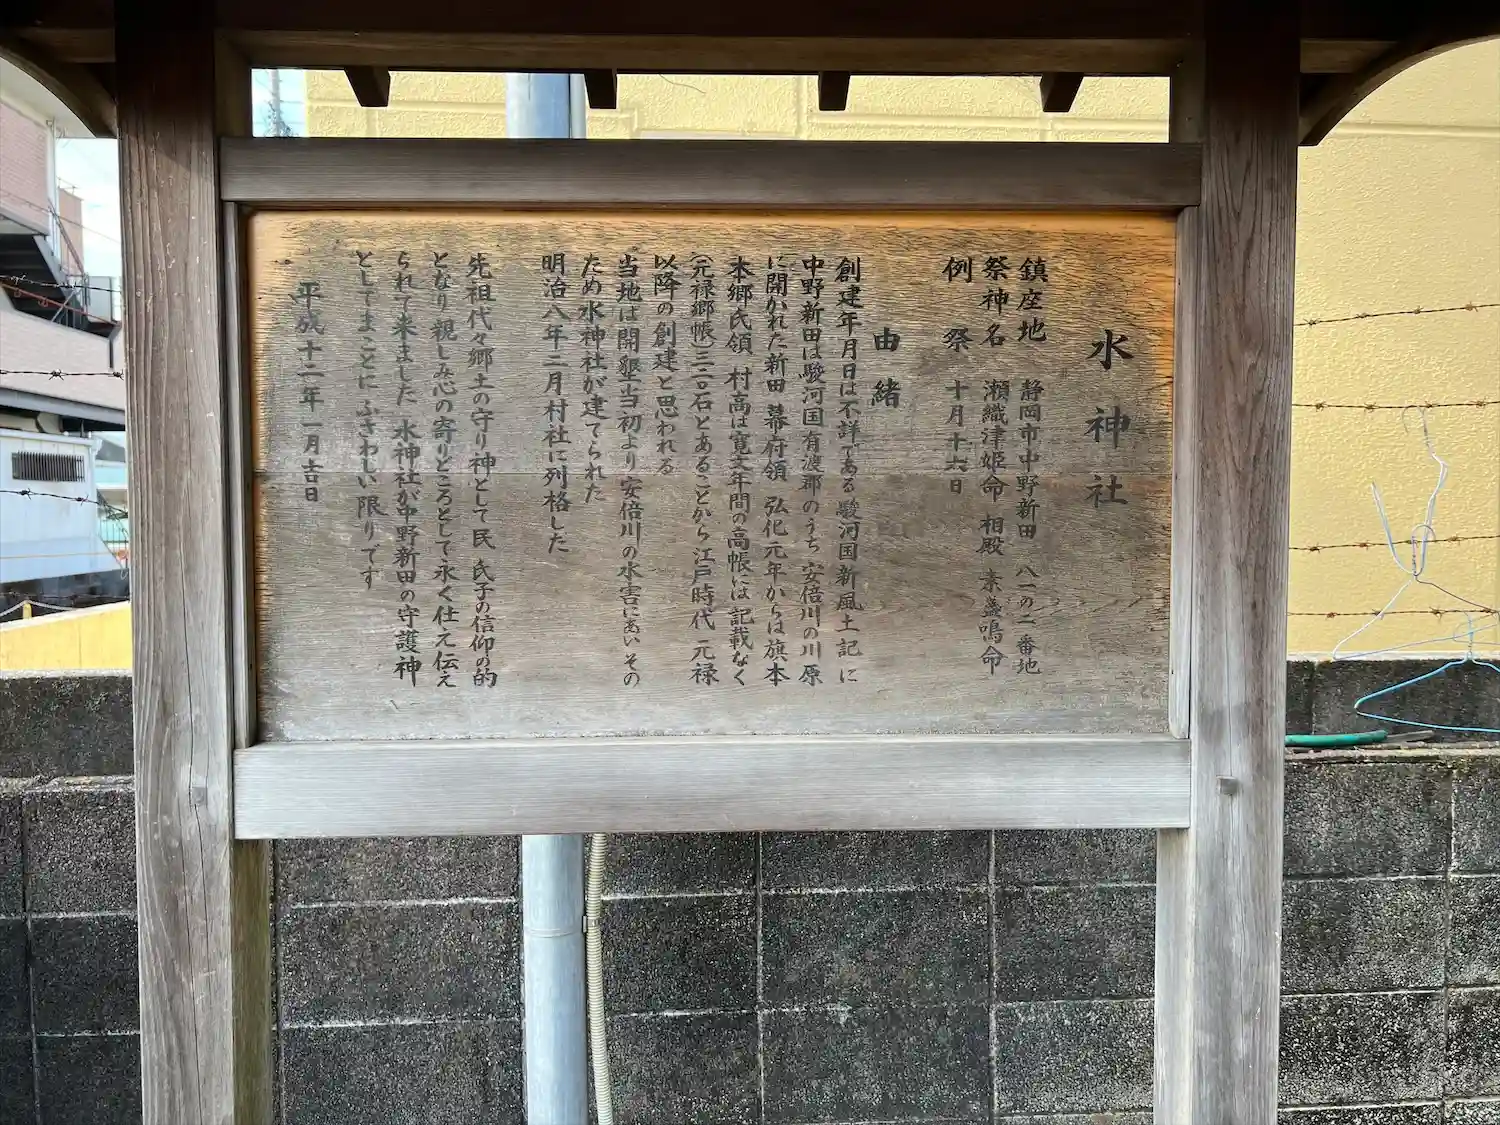 水神社
鎮座地 静岡市中野新田 八一の二番地
祭神名 瀬織津姫命 相殿 素盞鳴命
例祭 十月十六日
由緒
創建年月日は不詳である 駿河国新風土記に
中野新田は駿河国有渡郡のうち 安倍川の川原
に開かれた新田 幕府領 弘化元年からは旗本
本郷氏領 村高は寛文年間の高帳には記載なく
(元禄郷帳)三二〇石とあることから 江戸時代 元禄
以降の創建と思われる
当地は開墾当初より安倍川の水害にあい その
ため水神社が建てられた
明治八年二月村社に列格した
先祖代々郷土の守り神として民 氏子の信仰の的
となり親しみ心の寄りどころとして永く仕え伝え
られて来ました 水神社が中野新田の守護神
としてまことに ふさわしい限りです
平成十二年一月吉日